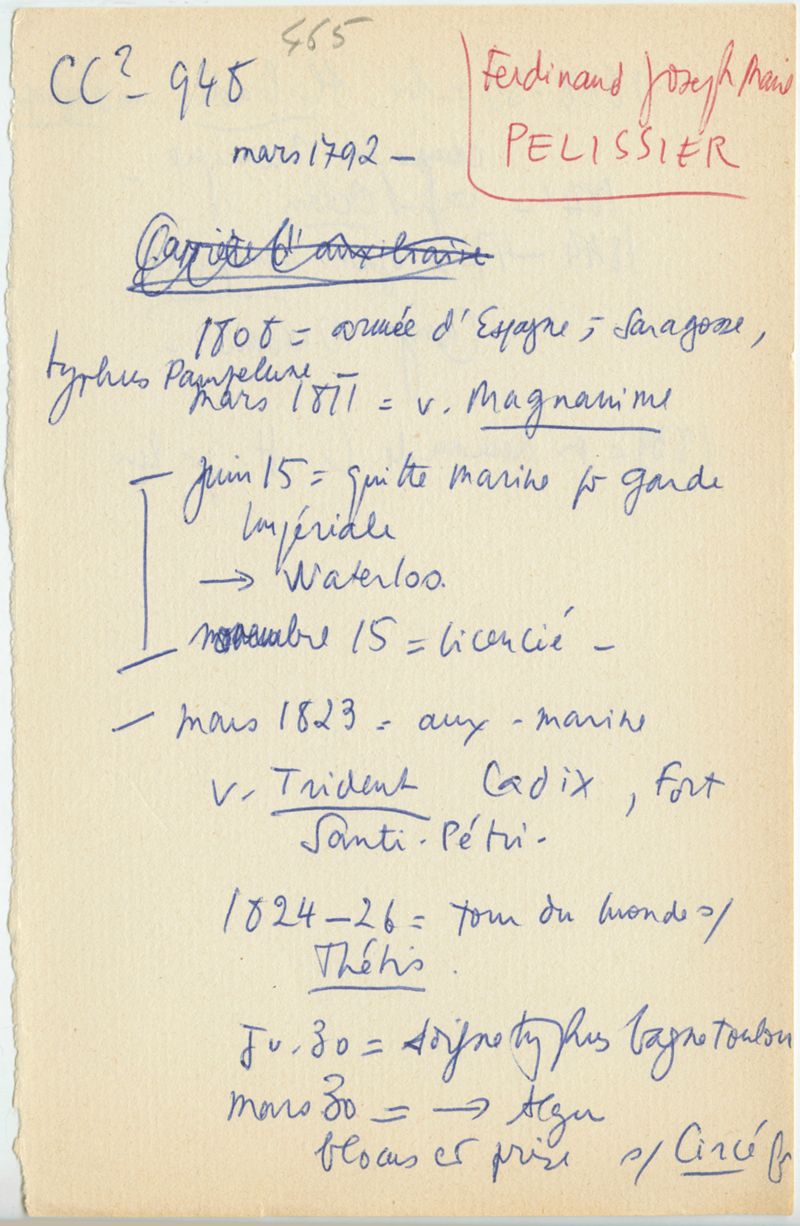 465
CC² - 948
Ferdinand Joseph Marie
PELISSIER
mars 1792 -
Carrière d'auxiliaire
1808 = armée d'Espagne, - Saragosse,
typhus Pampelune -
mars 1811 = v. Magnanime
- juin 15 = quitte marine pr garde
Impériale
→ Waterloo.
novembre 15 = licencié -
- mars 1823 = aux - marine
v. Trident Cadix, Fort
Santi-Pétri -
1824-26 = tour du monde s/
Thétis.
Jv. 30 = soigne typhus bagne Toulon
mars 30 = → Alger
blocus et prise s/ Circé